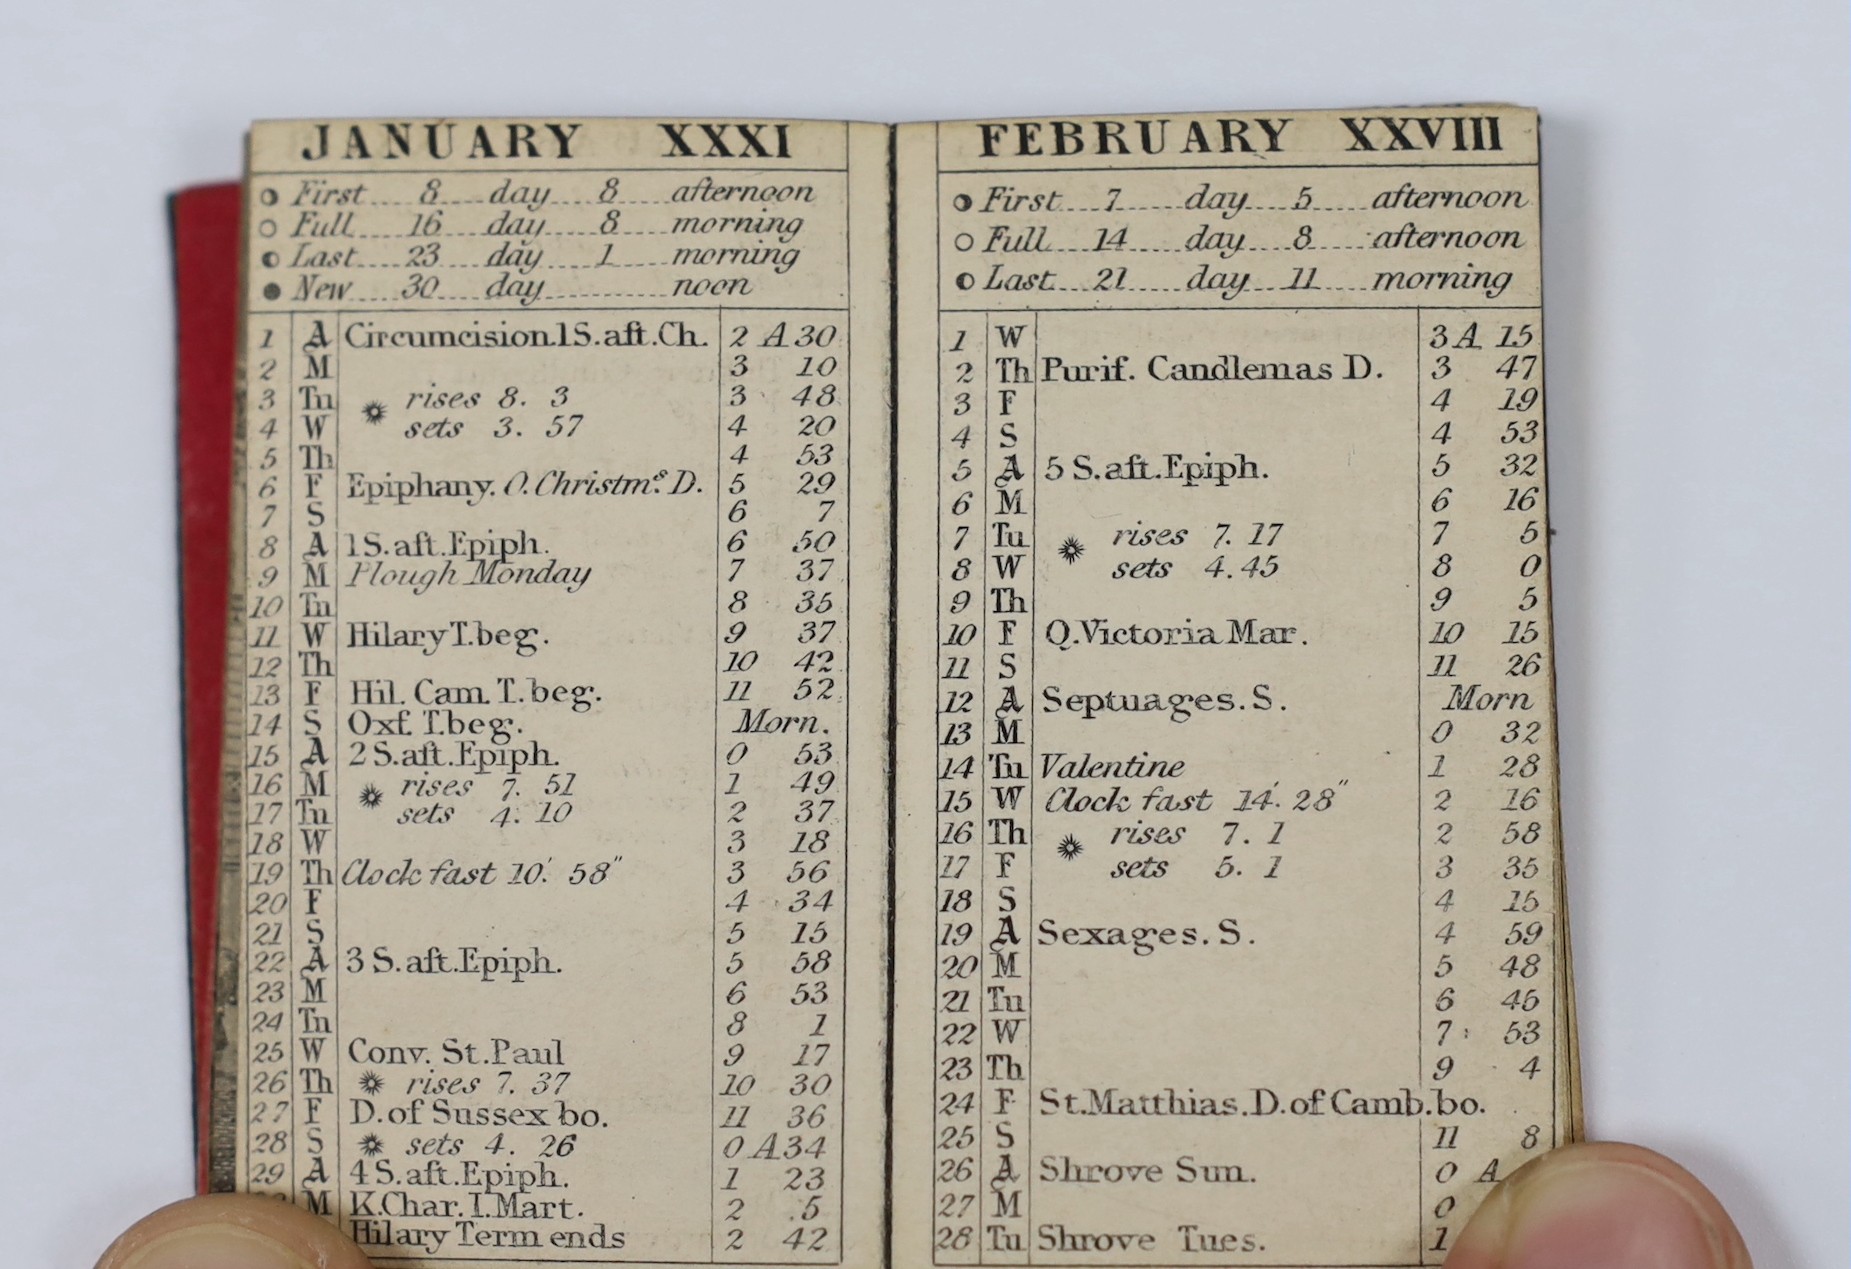 JANUARY XXXI
First 8 day 8 afternoon
Full 16 day 8 morning
Last 23 day 1 morning
New 30 day noon
1 A Circumcision.1S.aft.Ch. 2 A 30
2 M 3 10
3 Tu rises 8. 3 3 48
4 W sets 3. 57 4 20
5 Th 4 53
6 F Epiphany. O.Christms. D. 5 29
7 S 6 7
8 A 1S.aft.Epiph. 6 50
9 M Plough Monday 7 37
10 Tu 8 35
11 W Hilary T.beg. 9 37
12 Th 10 42
13 F Hil. Cam. T.beg. 11 52
14 S Oxf. T.beg. Morn.
15 A 2 S.aft.Epiph. 0 53
16 M rises 7. 51 1 49
17 Tu sets 4. 10 2 37
18 W 3 18
19 Th Clock fast 10′. 58″ 3 56
20 F 4 34
21 S 5 15
22 A 3 S.aft.Epiph. 5 58
23 M 6 53
24 Tu 8 1
25 W Conv. St.Paul 9 17
26 Th rises 7. 37 10 30
27 F D.of Sussex bo. 11 36
28 S sets 4. 26 0 A 34
29 A 4 S.aft.Epiph. 1 23
M K.Char.I.Mart. 2 5
Hilary Term ends 2 42
FEBRUARY XXVIII
First 7 day 5 afternoon
Full 14 day 8 afternoon
Last 21 day 11 morning
1 W 3 A 15
2 Th Purif. Candlemas D. 3 47
3 F 4 19
4 S 4 53
5 A 5 S.aft.Epiph. 5 32
6 M 6 16
7 Tu rises 7. 17 7 5
8 W sets 4.45 8 0
9 Th 9 5
10 F Q.Victoria Mar. 10 15
11 S 11 26
12 A Septuages. S. Morn
13 M 0 32
14 Tu Valentine 1 28
15 W Clock fast 14′. 28″ 2 16
16 Th rises 7. 1 2 58
17 F sets 5. 1 3 35
18 S 4 15
19 A Sexages. S. 4 59
20 M 5 48
21 Tu 6 45
22 W 7 53
23 Th 9 4
24 F St.Matthias.D.of Camb.bo.
25 S 11 8
26 A Shrove Sun. 0 A
27 M 0
28 Tu Shrove Tues. 1